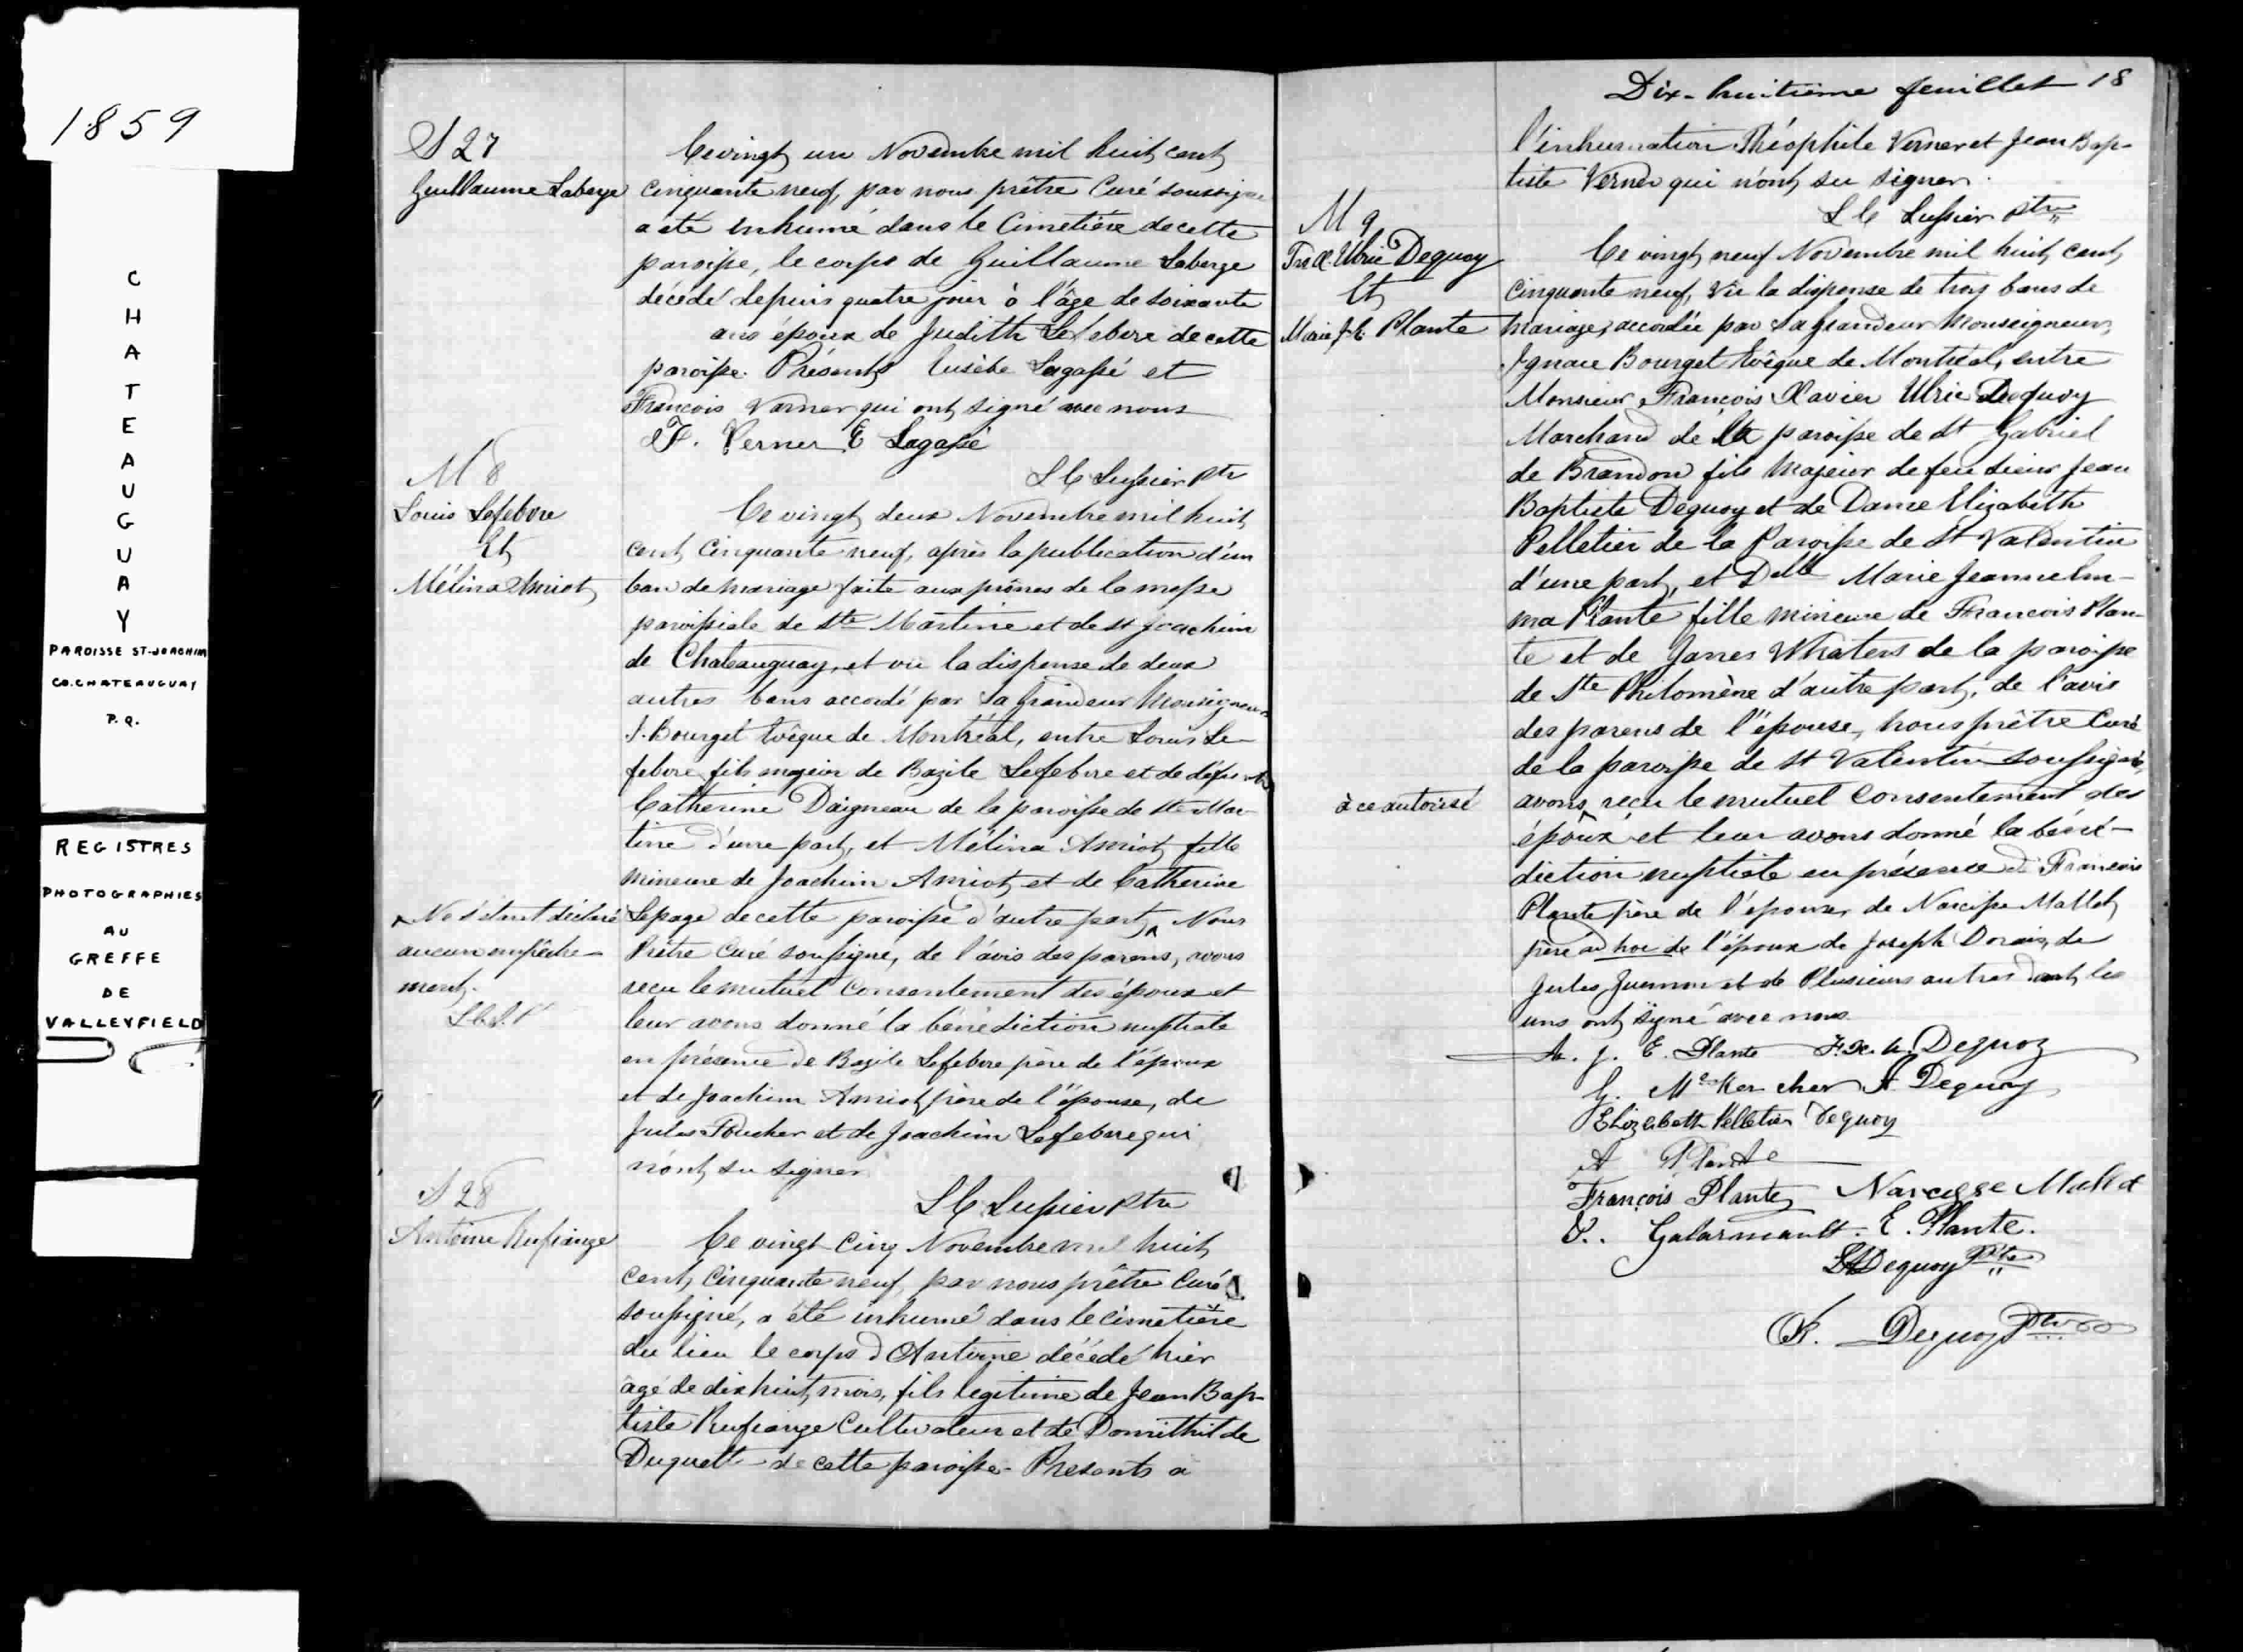 1859
CHATEAUGUAY
PAROISSE ST-JOACHIM
CO. CHATEAUGUAY
P.Q.
REGISTRES
PHOTOGRAPHIES
AU
GREFFE
DE
VALLEYFIELD
S 27
Guillaume Laberge
Ce vingt un Novembre mil huit cent
cinquante neuf, par nous prêtre Curé soussigné
a été inhumé dans le Cimetière de cette
paroisse, le corps de Guillaume Laberge
décédé depuis quatre jour à l'âge de soixante
ans époux de Judith Lefebvre de cette
paroisse. Présents Eusèbe Lagassé et
François Varner qui ont signé avec nous
F. Verner E Lagassé
L C Lussier Ptr
M 8
Louis Lefebvre
Et
Mélina Amiot
Ce vingt deux Novembre mil huit
cent Cinquante neuf, après la publication d'un
ban de mariage faite aux prônes de la messe
paroissiale de Ste Martine et de St Joachim
de Chateauguay, et vu la dispense de deux
autres bans accordé par Sa Grandeur Monseigneur
I. Bourget Evêque de Montréal, entre Louis Le-
febvre fils majeur de Bazile Lefebvre et de défunte
Catherine Daigneau de la paroisse de Ste Mar-
tine d'une part, et Mélina Amiot fille
mineure de Joachim Amiot et de Catherine
Lepage de cette paroisse d'autre part, ^ Nous
Prêtre Curé soussigné, de l'avis des parens, avons
reçu le mutuel Consentement des époux et
leur avons donné la bénédiction nuptiale
en présence de Bazile Lefebvre père de l'époux
et de Joachim Amiot père de l'épouse, de
Jules Poucher et de Joachim Lefebvre qui
n'ont su signer
L C Lussier Ptr
^ Ne s'étant déclaré
aucun empêche-
ment.
L.C.L. P
S 28
Antoine Rufiange
Ce vingt Cinq Novembre mil huit
cent, Cinquante neuf, par nous prêtre Curé
soussigné, a été inhumé dans le cimetière
du lieu le corps d'Antoine décédé hier
âgé de dix huit mois, fils légitime de Jean Bap-
tiste Rufiange Cultivateur et de Domithilde
Duquett de cette paroisse. Présents a
Dix-huitième feuillet 18
l'inhumation Théophile Verner et Jean Bap-
tiste Verner qui n'ont su signer.
L C Lussier Ptre
M 9
Frs X. Ulric Dequoy
Et
Marie J. E. Plante
Ce vingt neuf Novembre mil huit cent
Cinquante neuf, Vu la dispense de trois bans de
mariage, accordée par Sa Grandeur Monseigneur,
Ignace Bourget Evêque de Montréal, entre
Monsieur François Xavier Ulric Dequoy
Marchand de la paroisse de St Gabriel
de Brandon fils Majeur de feu Sieur Jean
Baptiste Dequoy et de Dame Elizabeth
Pelletier de la Paroisse de St Valentin
d'une part, et Delle Marie Jeanne Em-
ma Plante fille mineure de Francois Plan-
te et de Janes Whaters de la paroisse
de Ste Philomène d'autre part, de l'avis
des parens de l'épouse, nous prêtre Curé
de la paroisse de St Valentin soussigné,
à ce autorisé
avons ^ reçu le mutuel Consentement des
époux et leur avons donné la béné-
diction nuptiale en présence de François
Plante père de l'épouse, de Narcisse Mallet
père ad hoc de l'époux de Joseph Dorais, de
Jules et de Plusieurs autres dont les
uns ont signé avec nous
M. J. E. Plante F. X. U. Dequoy
G. McKercher A. Dequoy
Elizabeth Pelletier Dequoy
A Plante
François Plante Narcisse Mallet
Galarneault. E. Plante.
Dequoy Ptre
Dequoy Ptre